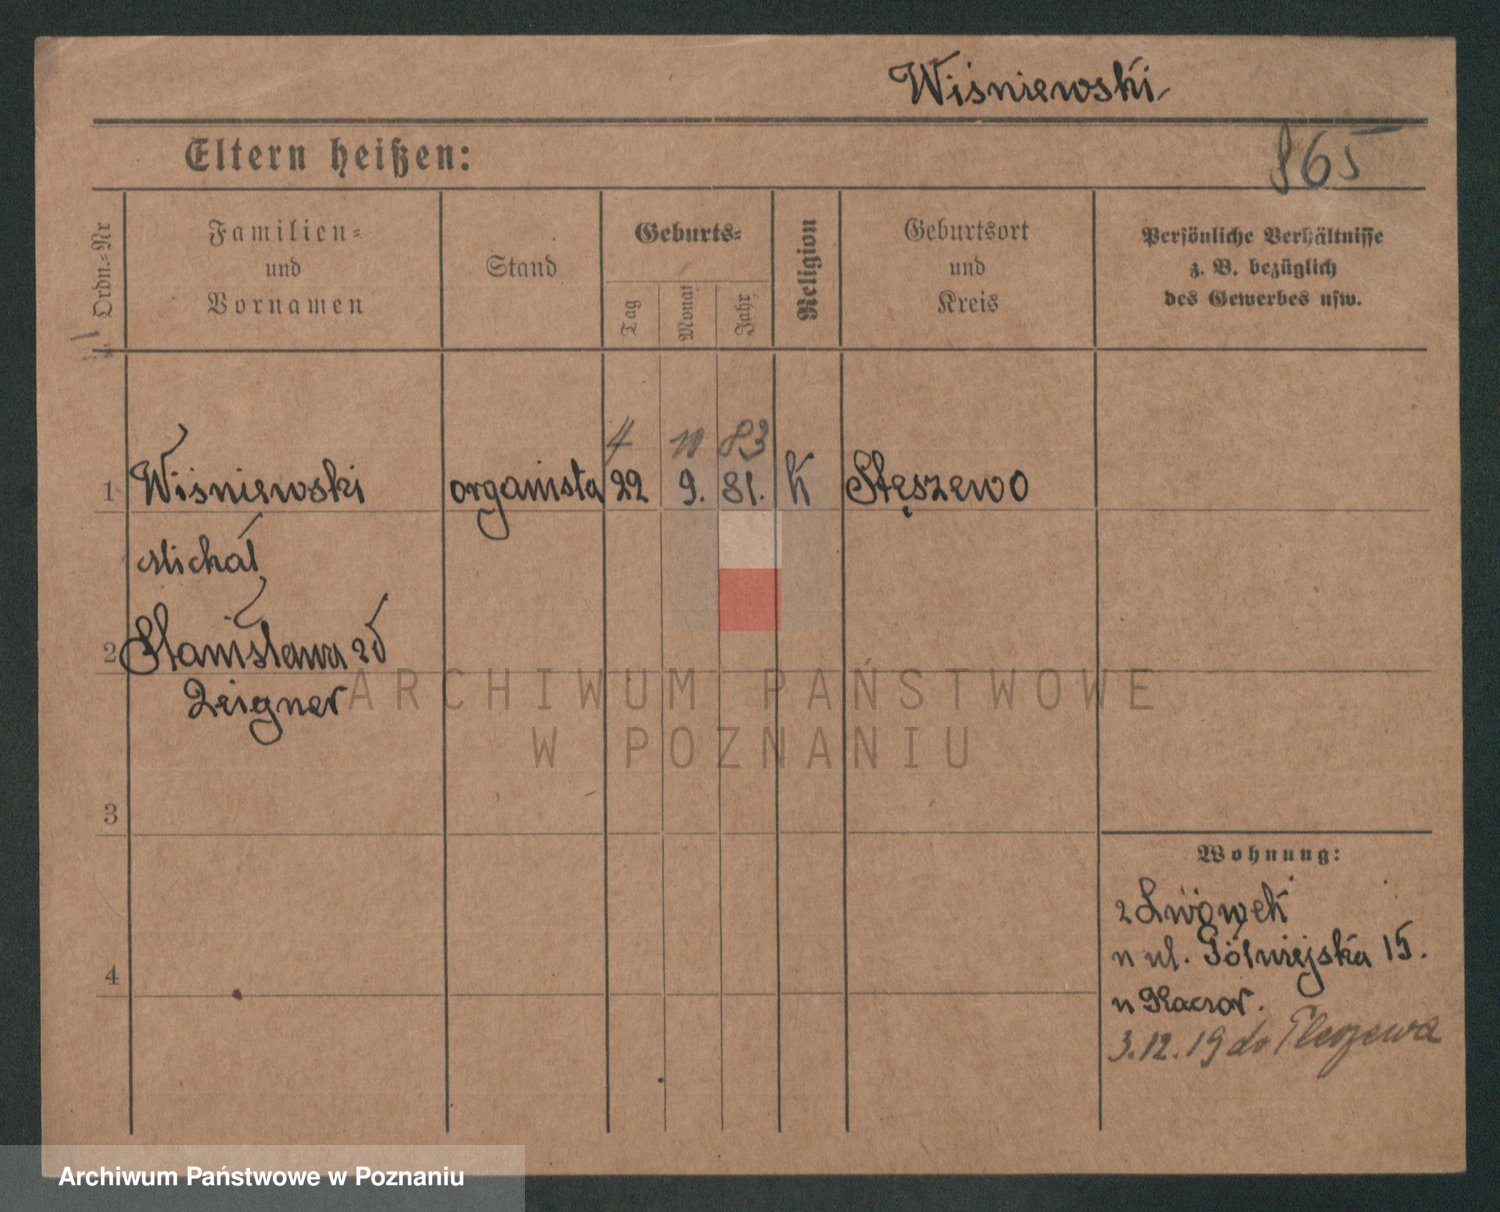 Wiśniewski
Eltern heißen:
865
Ordn.-Nr
Familien- und Vornamen
Stand
Geburts-
Tag
Monat
Jahr
Religion
Geburtsort und Kreis
Persönliche Verhältnisse
z. B. bezüglich
des Gewerbes usw.
4 10 83
1 Wiśniewski organista 22 9. 81. K Stęszewo
Michał
2 Stanisława zd
Zeigner
ARCHIWUM PAŃSTWOWE
W POZNANIU
3
Wohnung:
z Lwówek
4
n ul. 15.
n Kaczor.
3.12.19 do Pleszewa
Archiwum Państwowe w Poznaniu